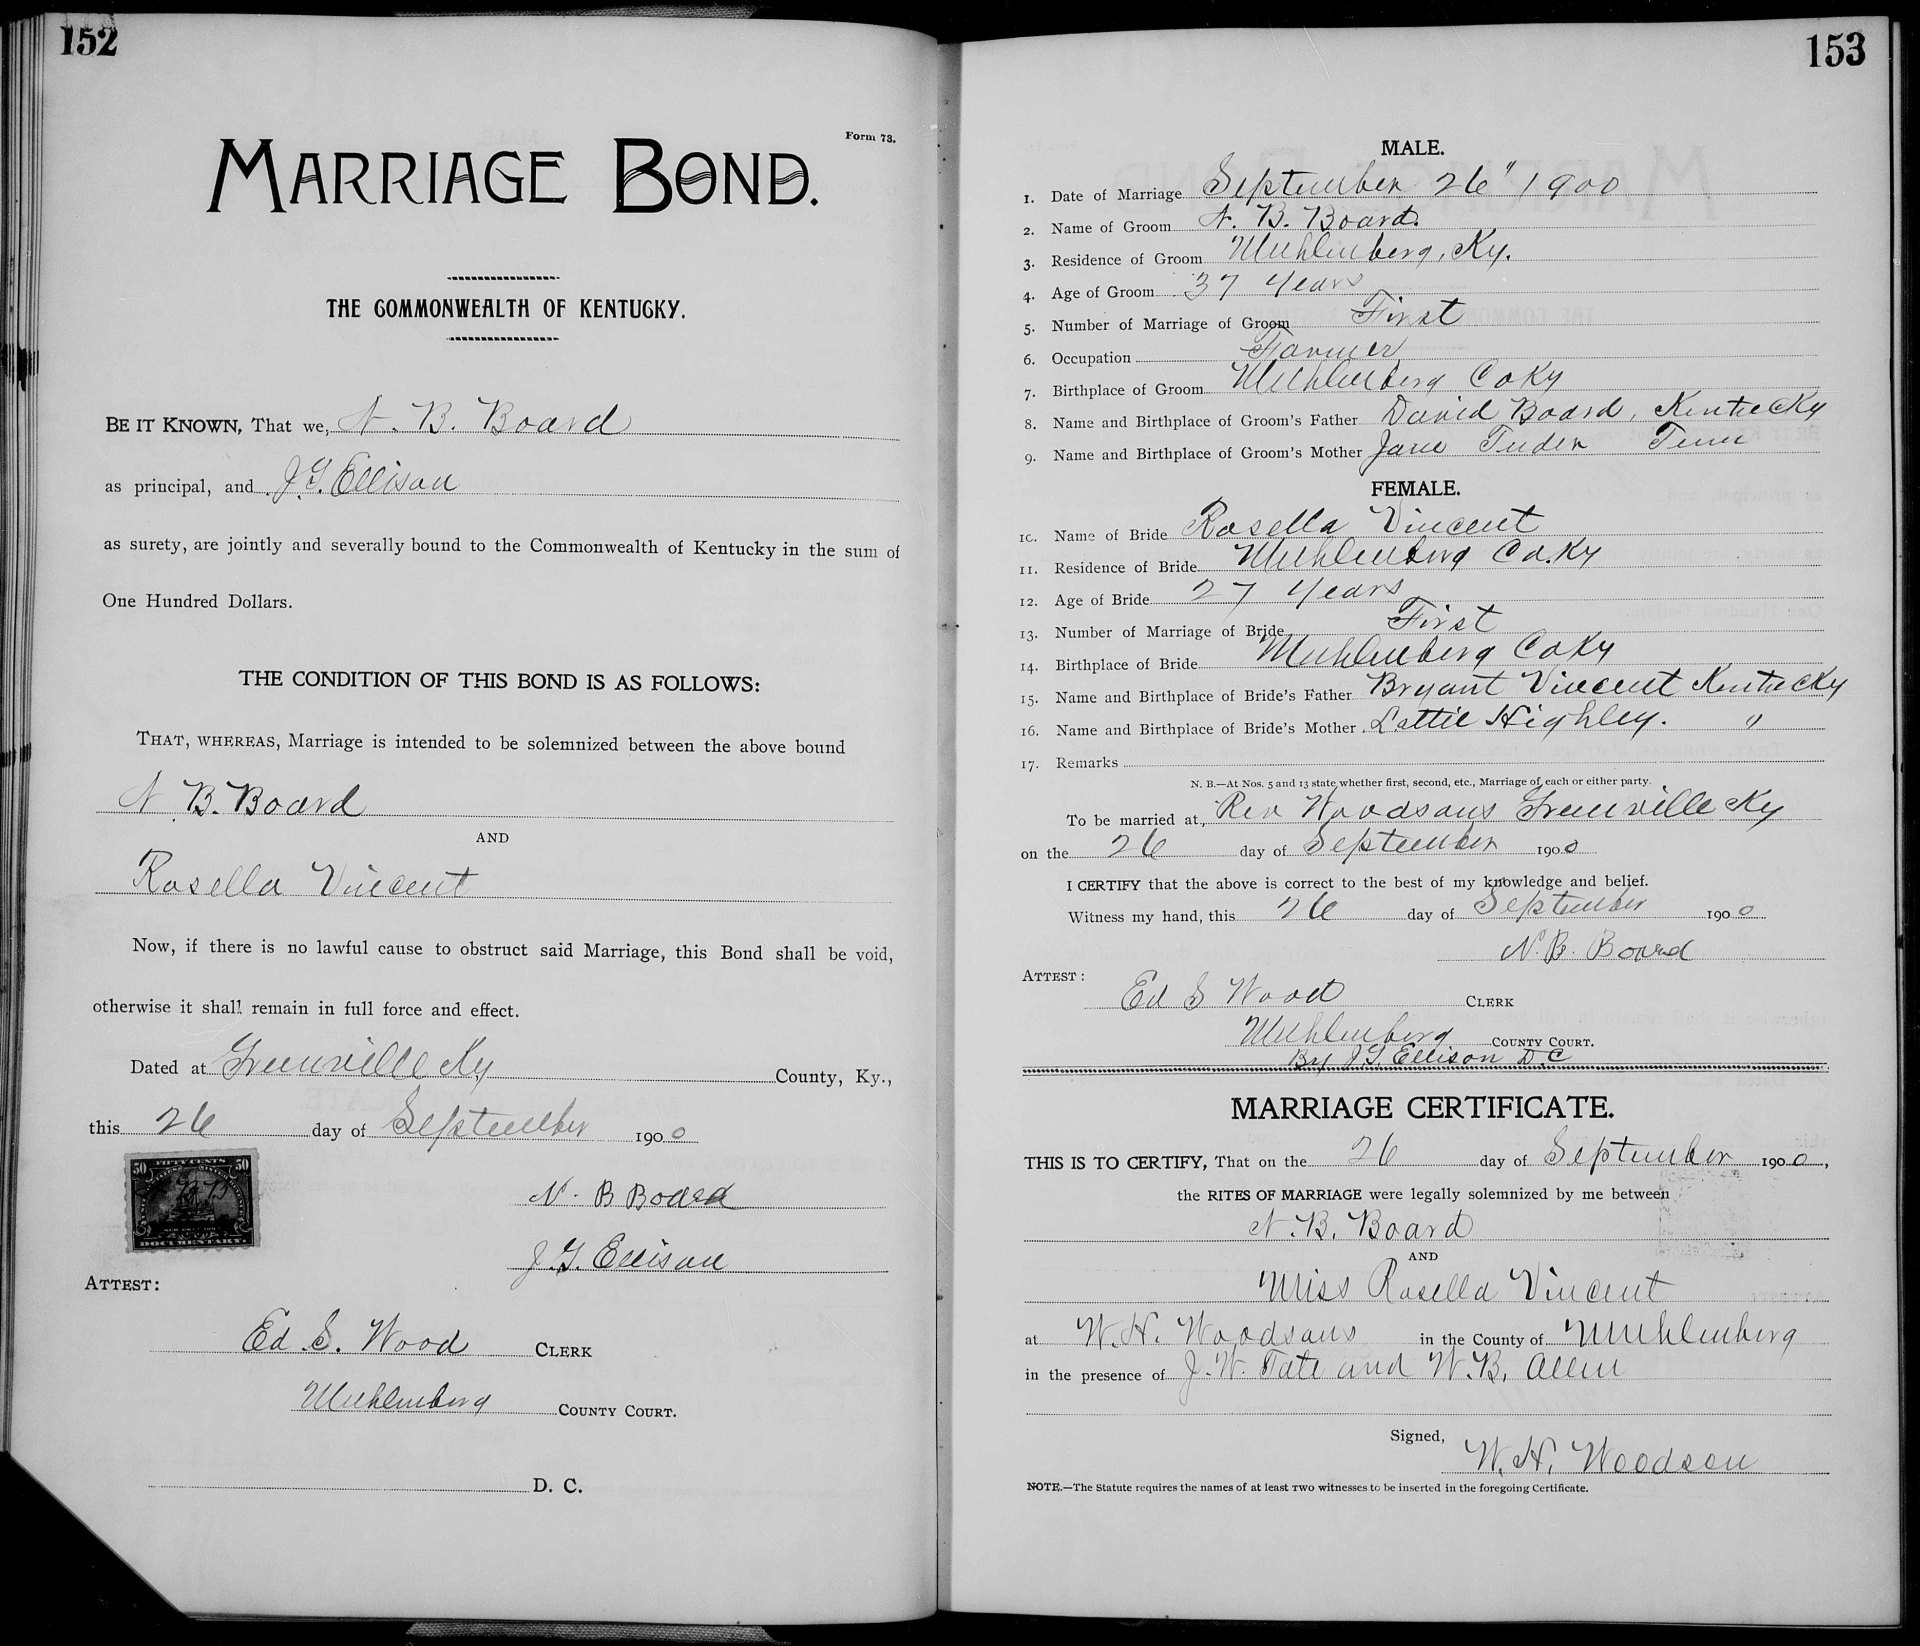 152
Form 73.
MARRIAGE BOND.
THE COMMONWEALTH OF KENTUCKY.
BE IT KNOWN, That we, N. B. Board
as principal, and J. G. Ellison
as surety, are jointly and severally bound to the Commonwealth of Kentucky in the sum of
One Hundred Dollars.
THE CONDITION OF THIS BOND IS AS FOLLOWS:
THAT, WHEREAS, Marriage is intended to be solemnized between the above bound
N B. Board
AND
Rosella Vincent
Now, if there is no lawful cause to obstruct said Marriage, this Bond shall be void,
otherwise it shall remain in full force and effect.
Dated at Greenville Ky County, Ky.,
this 26 day of September 1900
50 FIFTY CENTS 50
DOCUMENTARY.
N. B Board
J. G. Ellison
ATTEST:
Ed S. Wood CLERK
Muhlenberg COUNTY COURT.
D. C.
153
MALE.
1. Date of Marriage September 26" 1900
2. Name of Groom N. B. Board.
3. Residence of Groom Muhlenberg, Ky.
4. Age of Groom 37 Years
5. Number of Marriage of Groom First
6. Occupation Farmer
7. Birthplace of Groom Muhlenberg Co Ky
8. Name and Birthplace of Groom's Father David Board, Kentucky
9. Name and Birthplace of Groom's Mother Jane Tuder Tenn
FEMALE.
10. Name of Bride Rosella Vincent
11. Residence of Bride Muhlenberg Co. Ky
12. Age of Bride 27 Years
13. Number of Marriage of Bride First
14. Birthplace of Bride Muhlenberg Co Ky
15. Name and Birthplace of Bride's Father Bryant Vincent Kentucky
16. Name and Birthplace of Bride's Mother Lettie Highley. "
17. Remarks
N. B.—At Nos. 5 and 13 state whether first, second, etc., Marriage of each or either party.
To be married at Rev Woodsons Greenville Ky
on the 26 day of September 1900
I CERTIFY that the above is correct to the best of my knowledge and belief.
Witness my hand, this 26 day of September 1900
N. B. Board
ATTEST:
Ed S Wood CLERK
Muhlenberg COUNTY COURT.
By J G Ellison D. C
MARRIAGE CERTIFICATE.
THIS IS TO CERTIFY, That on the 26 day of September 1900,
the RITES OF MARRIAGE were legally solemnized by me between
N. B. Board
AND
Miss Rosella Vincent
at W. H. Woodsons in the County of Muhlenberg
in the presence of J. W. Tate and W. B. Allen
Signed,
W. H. Woodson
NOTE.—The Statute requires the names of at least TWO witnesses to be inserted in the foregoing Certificate.